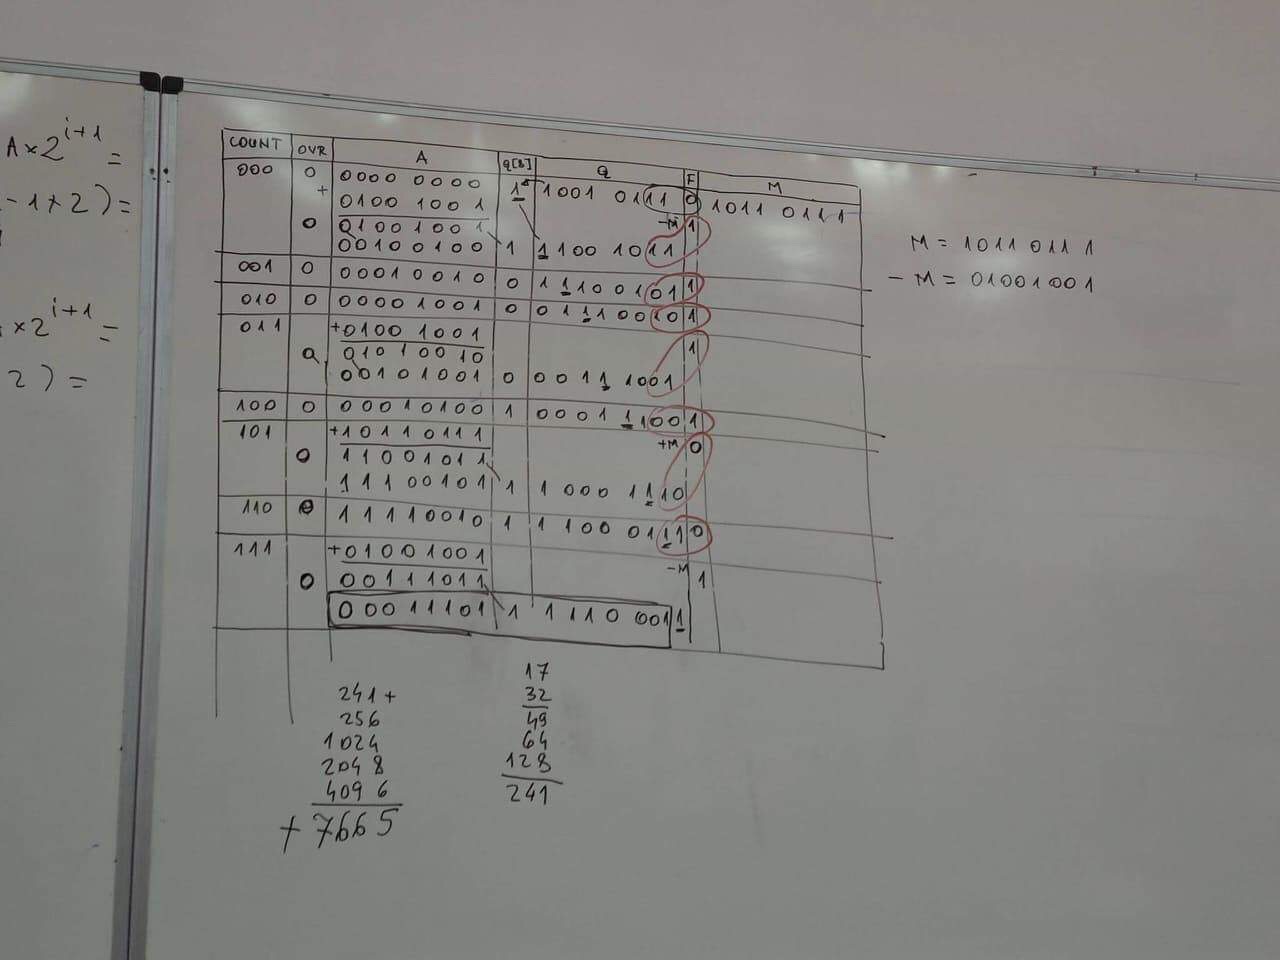 A×2^{i+1} =
-1×2) =
×2^{i+1} =
2) =
COUNT OVR A Q[8] Q F M
000 0 0000 0000 1 1001 0111 0 1011 0111
+ 0100 1001 -M 1
0 01001001
00100100 1 1100 1011
001 0 00010010 0 11100101 1
010 0 00001001 0 01110010 1
011 +0100 1001 1
0 01010010
00101001 0 0011 1001
100 0 00010100 1 0001 1100 1
101 +10110111 +M 0
0 11001011
11100101 1 1000 1110
110 0 11110010 1 1100 0111 0
111 +01001001 -M 1
0 00111011
00011101 1 1110 0011
M = 1011 0111
- M = 01001001
241+
256
1024
2048
4096
+7665
17
32
49
64
128
241